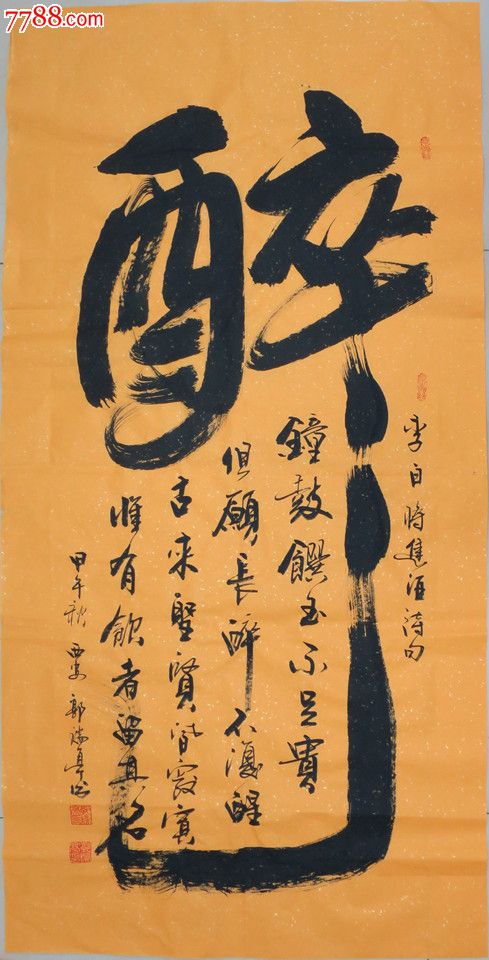 7788.com
醉
李白將進酒詩句
鐘鼓饌玉不足貴
但願長醉不復醒
古來聖賢皆寂寞
惟有飲者留其名
甲午秋 西安 郭